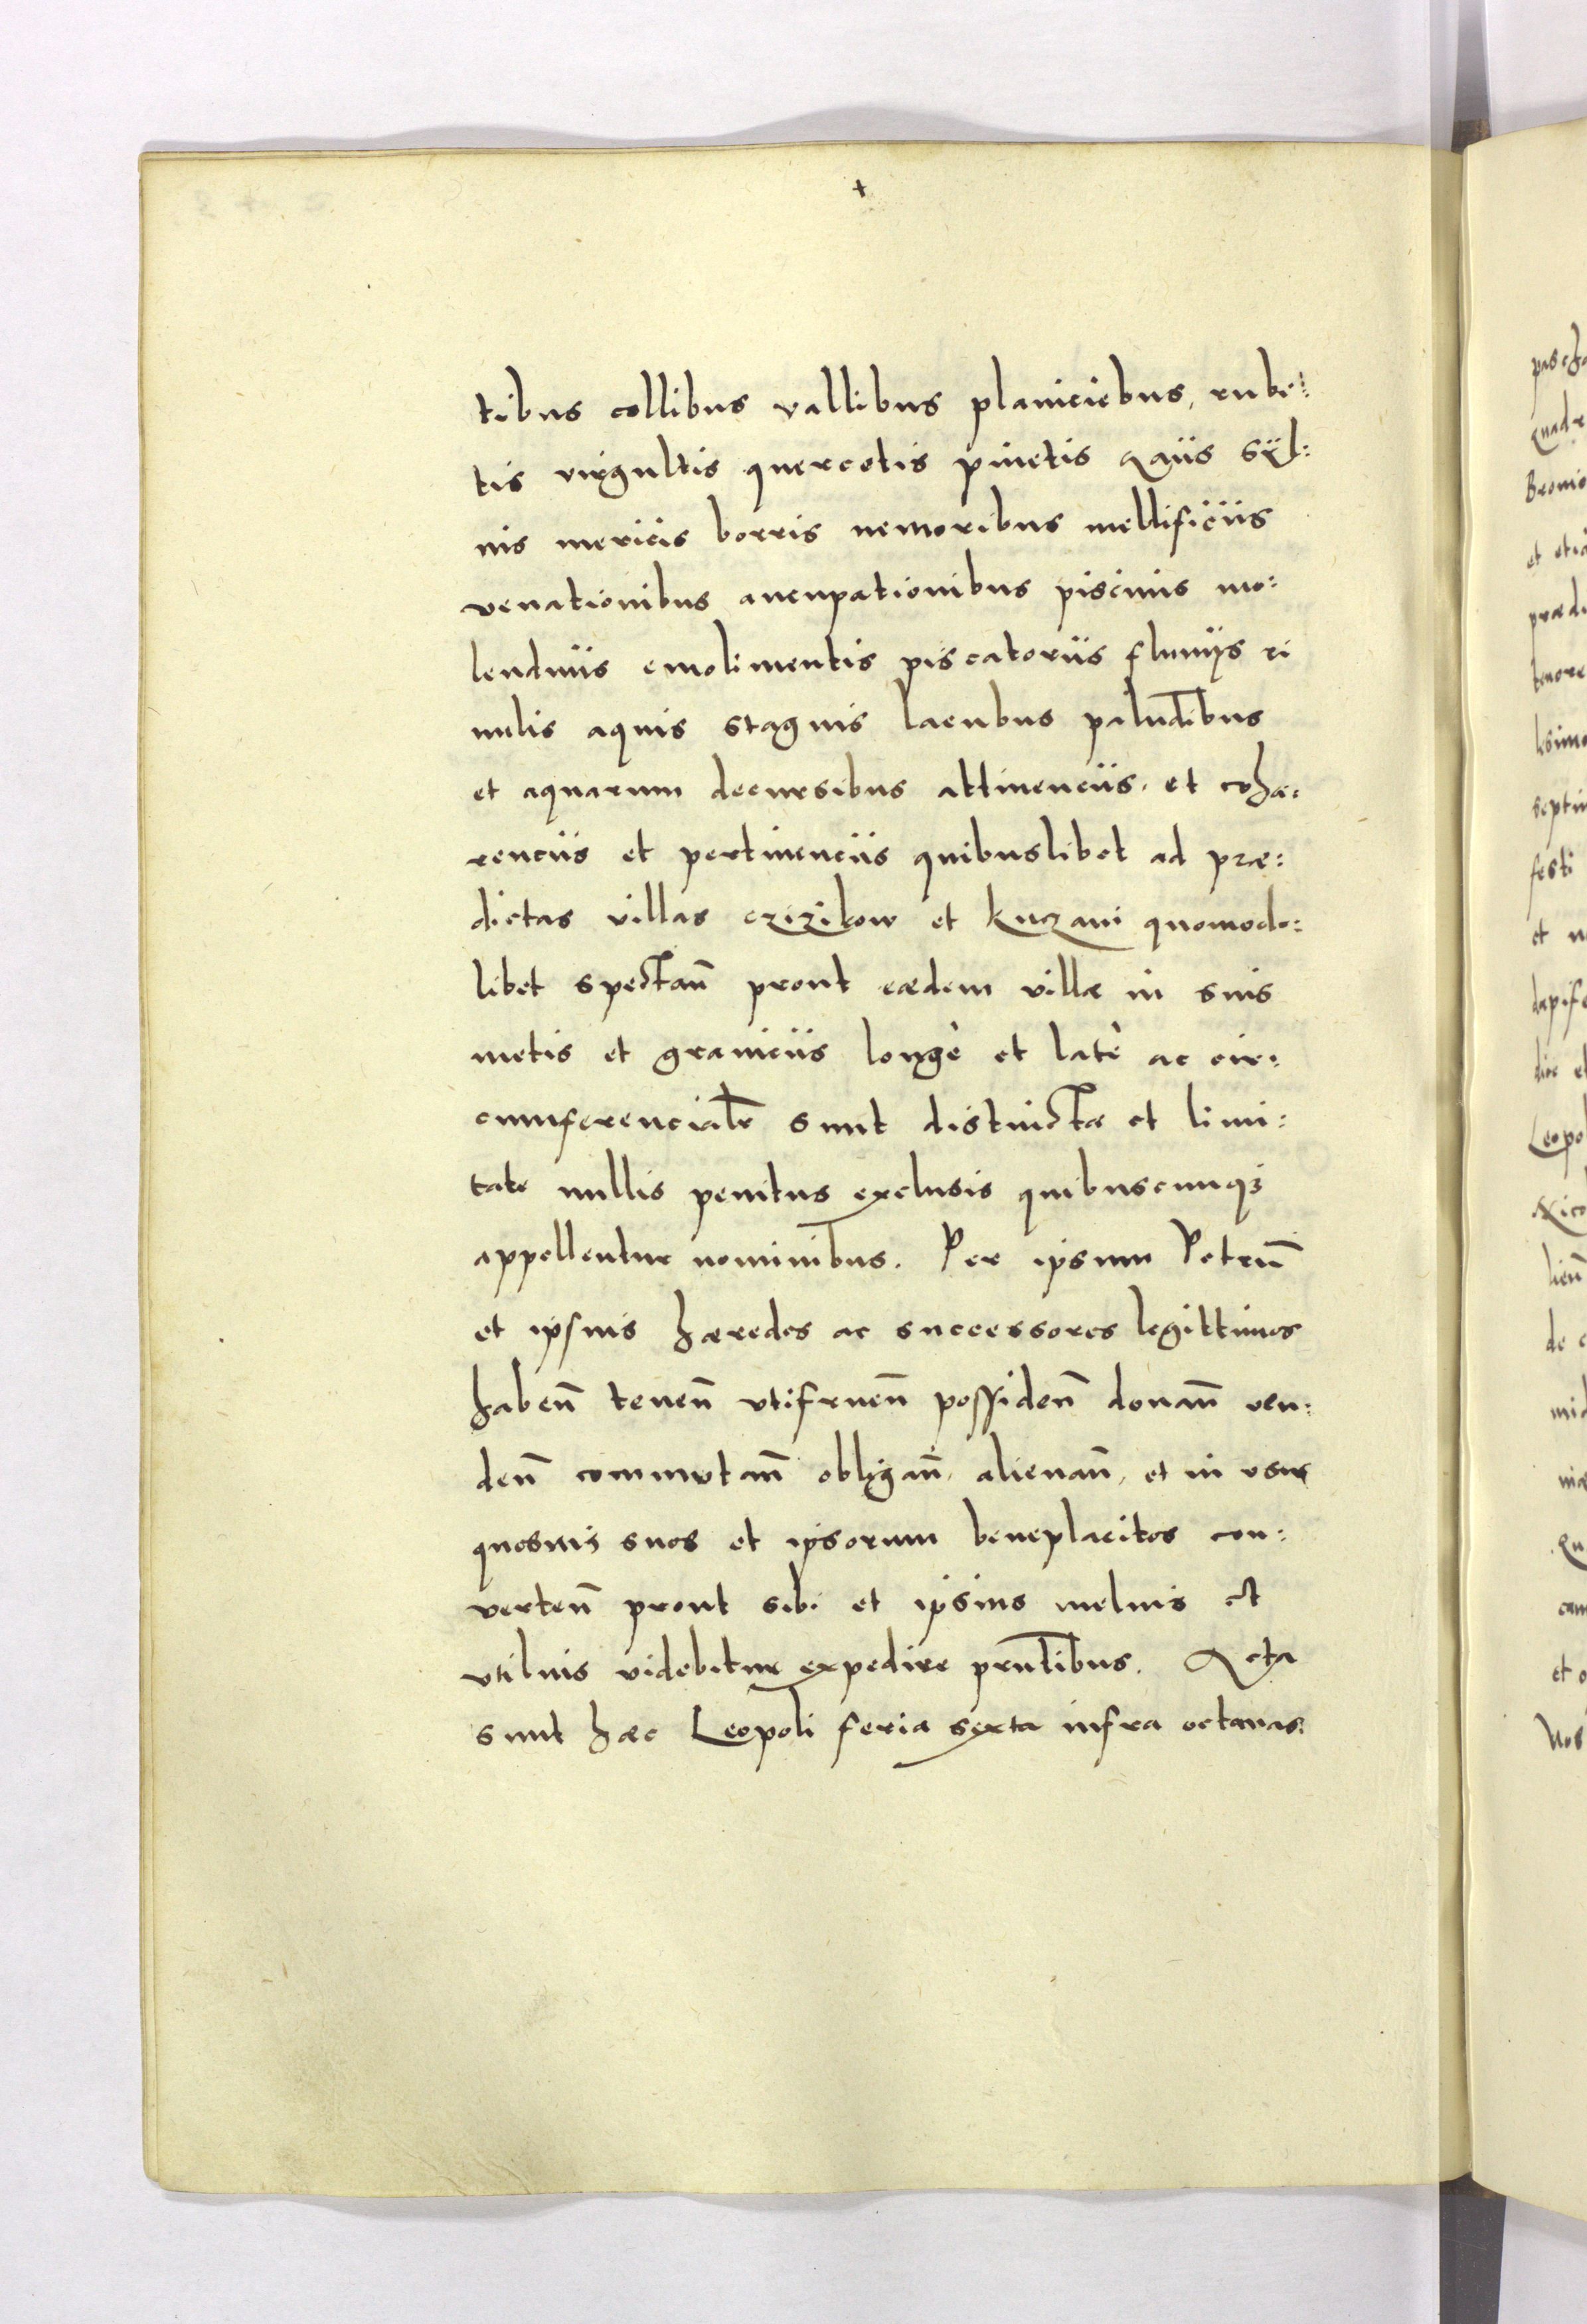 +
tibus collibus vallibus planiciebus, rube:
tis virgultis quercetis pinetis Gaiis Syl:
uis mericis borris nemoribus mellificiis
venationibus aucupationibus piscinis mo:
lendinis emolimentis piscatoriis fluuijs ri
uulis aquis stagnis lacubus paludibus
et aquarum decursibus attinenciis. et cohæ:
renciis et pertinenciis quibuslibet ad præ:
dictas villas czizikow et kuczani quomodo:
libet spectañ prout eædem villæ in suis
metis et graniciis longè et latè ac cir:
cumferencialr̄ sunt distinctæ et limi:
tate nullis penitus exclusis quibuscunqz
appellentur nominibus. Per ipsum Petrū
et ipsius hæredes ac successores legittimos
habeñ teneñ vtifrueñ possideñ donañ ven:
deñ commutañ obligañ, alienañ, et in vsus
quosuis suos et ipsorum beneplacitos con:
verteñ prout sibi et ipsius melius et
vtilius videbitur expedire prn̄tibus. Acta
sunt hæc Leopoli feria sexta infra octauas